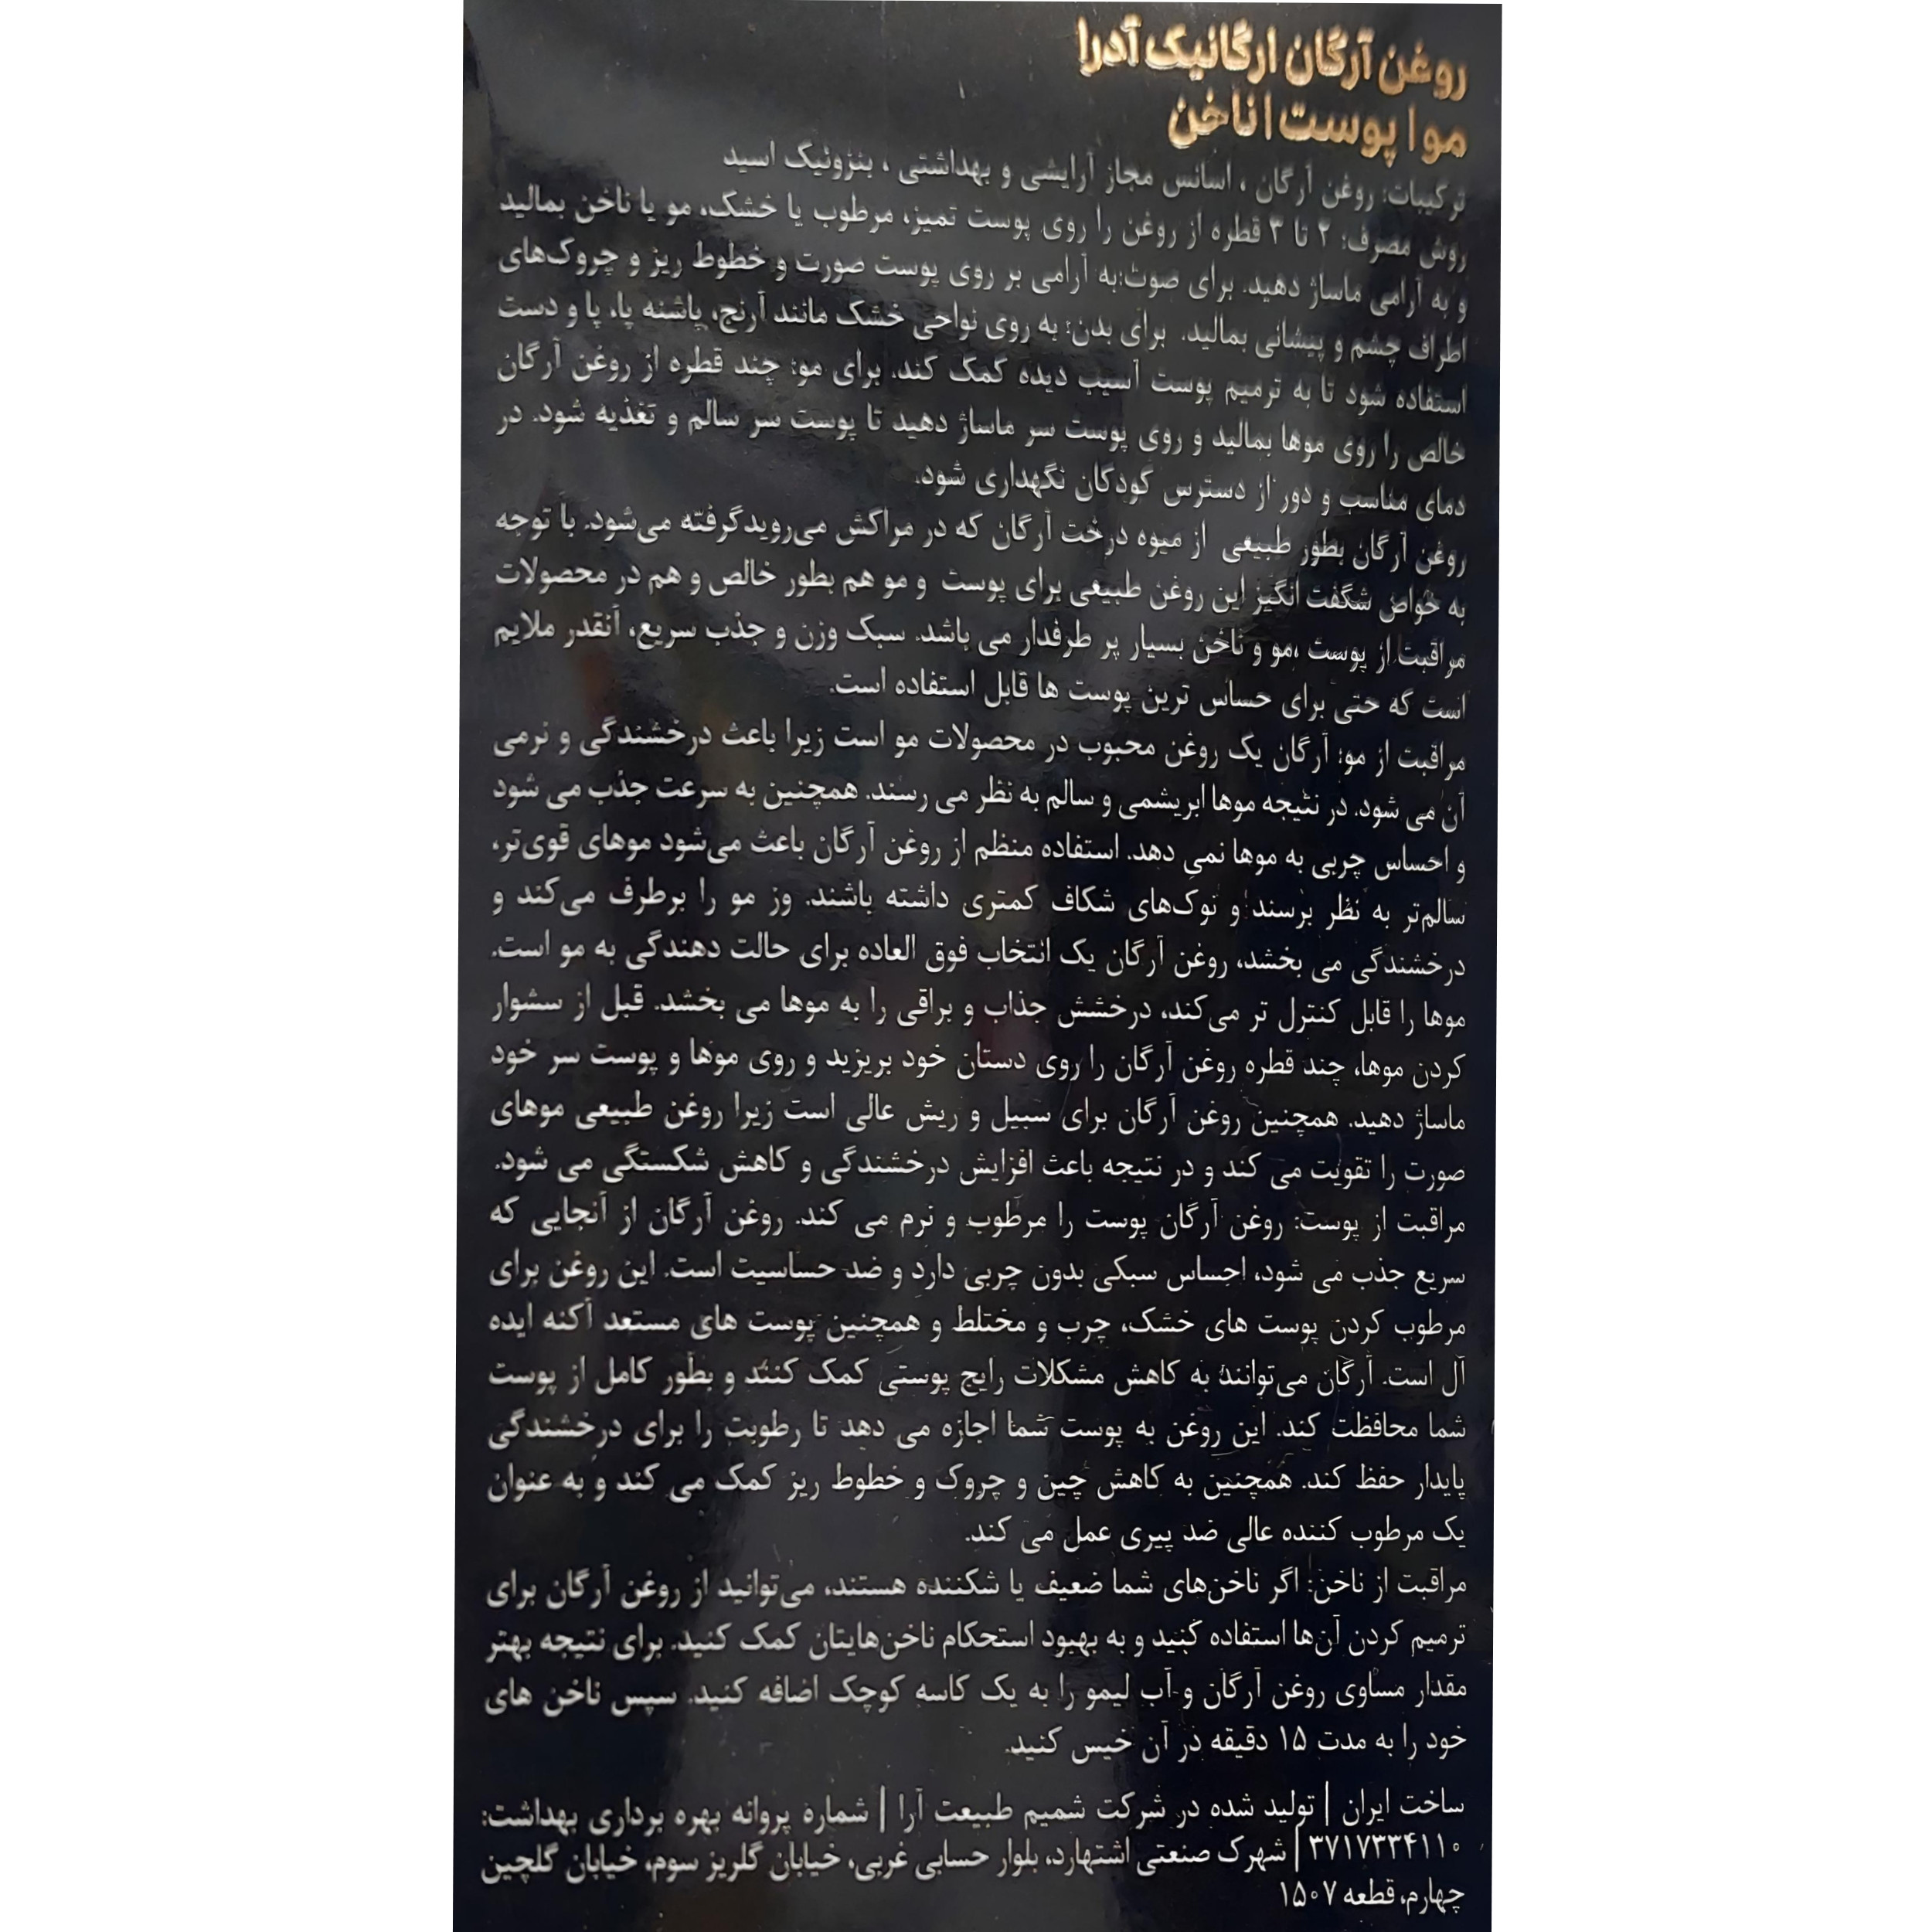 روغن آرگان ارگانیک آدرا
مو | پوست | ناخن
ترکیبات: روغن آرگان ، اسانس مجاز آرایشی و بهداشتی ، بنزوئیک اسید
روش مصرف: ۲ تا ۳ قطره از روغن را روی پوست تمیز، مرطوب یا خشک، مو یا ناخن بمالید
و به آرامی ماساژ دهید. برای صوت:به آرامی بر روی پوست صورت و خطوط ریز و چروک‌های
اطراف چشم و پیشانی بمالید. برای بدن: به روی نواحی خشک مانند آرنج، پاشنه پا، پا و دست
استفاده شود تا به ترمیم پوست آسیب دیده کمک کند. برای مو: چند قطره از روغن آرگان
خالص را روی موها بمالید و روی پوست سر ماساژ دهید تا پوست سر سالم و تغذیه شود. در
دمای مناسب و دور از دسترس کودکان نگهداری شود.
روغن آرگان بطور طبیعی از میوه درخت آرگان که در مراکش می‌رویدگرفته می‌شود. با توجه
به خواص شگفت انگیز این روغن طبیعی برای پوست و مو هم بطور خالص و هم در محصولات
مراقبت از پوست ،مو و ناخن بسیار پر طرفدار می باشد. سبک وزن و جذب سریع، آنقدر ملایم
است که حتی برای حساس ترین پوست ها قابل استفاده است.
مراقبت از مو: آرگان یک روغن محبوب در محصولات مو است زیرا باعث درخشندگی و نرمی
آن می شود. در نتیجه موها ابریشمی و سالم به نظر می رسند. همچنین به سرعت جذب می شود
و احساس چربی به موها نمی دهد. استفاده منظم از روغن آرگان باعث می‌شود موهای قوی‌تر،
سالم‌تر به نظر برسند و نوک‌های شکاف کمتری داشته باشند. وز مو را برطرف می‌کند و
درخشندگی می بخشد، روغن آرگان یک انتخاب فوق العاده برای حالت دهندگی به مو است.
موها را قابل کنترل تر می‌کند، درخشش جذاب و براقی را به موها می بخشد. قبل از سشوار
کردن موها، چند قطره روغن آرگان را روی دستان خود بریزید و روی موها و پوست سر خود
ماساژ دهید. همچنین روغن آرگان برای سبیل و ریش عالی است زیرا روغن طبیعی موهای
صورت را تقویت می کند و در نتیجه باعث افزایش درخشندگی و کاهش شکستگی می شود.
مراقبت از پوست: روغن آرگان پوست را مرطوب و نرم می کند. روغن آرگان از آنجایی که
سریع جذب می شود، احساس سبکی بدون چربی دارد و ضد حساسیت است. این روغن برای
مرطوب کردن پوست های خشک، چرب و مختلط و همچنین پوست های مستعد آکنه ایده
آل است. آرگان می‌توانند به کاهش مشکلات رایج پوستی کمک کنند و بطور کامل از پوست
شما محافظت کند. این روغن به پوست شما اجازه می دهد تا رطوبت را برای درخشندگی
پایدار حفظ کند. همچنین به کاهش چین و چروک و خطوط ریز کمک می کند و به عنوان
یک مرطوب کننده عالی ضد پیری عمل می کند.
مراقبت از ناخن: اگر ناخن‌های شما ضعیف یا شکننده هستند، می‌توانید از روغن آرگان برای
ترمیم کردن آن‌ها استفاده کنید و به بهبود استحکام ناخن‌هایتان کمک کنید. برای نتیجه بهتر
مقدار مساوی روغن آرگان و آب لیمو را به یک کاسه کوچک اضافه کنید. سپس ناخن های
خود را به مدت ۱۵ دقیقه در آن خیس کنید.
ساخت ایران | تولید شده در شرکت شمیم طبیعت آرا | شماره پروانه بهره برداری بهداشت:
۳۷۱۷۳۳۴۱۱۰ | شهرک صنعتی اشتهارد، بلوار حسابی غربی، خیابان گلریز سوم، خیابان گلچین
چهارم، قطعه ۱۵۰۷